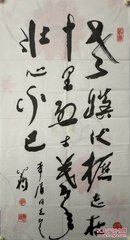 老驥伏櫪志在
千里烈士暮年
壮心不已